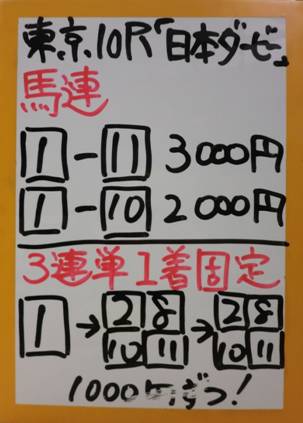 東京10R「日本ダービー」
馬連
1-11 3000円
1-10 2000円
3連単1着固定
1→2 8 10 11→2 8 10 11
1000円ずつ!